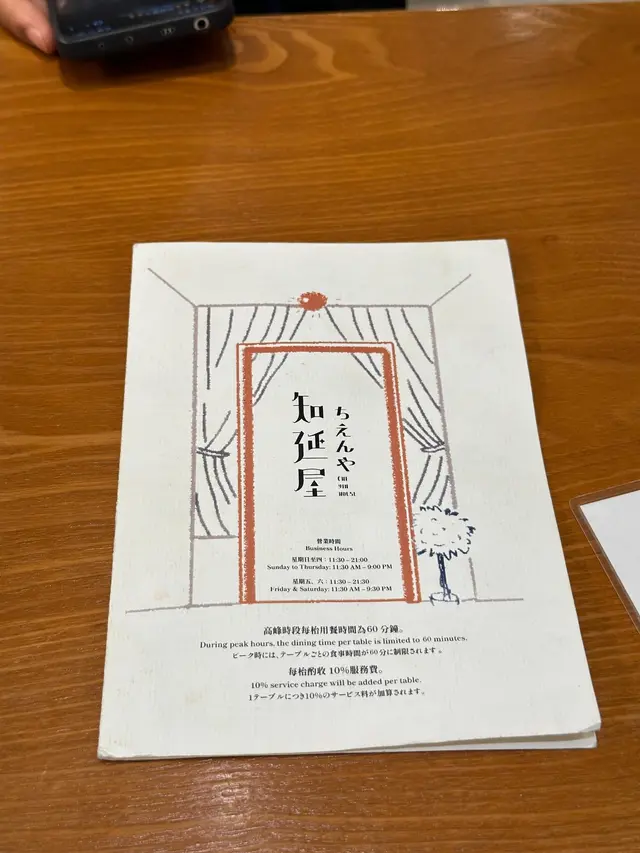 知延屋
ちえんや
CHI
YEN
HOUSE
營業時間
Business Hours
星期日至四：11:30 – 21:00
Sunday to Thursday: 11:30 AM – 9:00 PM
星期五、六：11:30 – 21:30
Friday & Saturday: 11:30 AM – 9:30 PM
高峰時段每枱用餐時間為60 分鐘。
During peak hours, the dining time per table is limited to 60 minutes.
ピーク時には、テーブルごとの食事時間が60分に制限されます。
每枱酌收 10% 服務費。
10% service charge will be added per table.
1テーブルにつき10%のサービス料が加算されます。